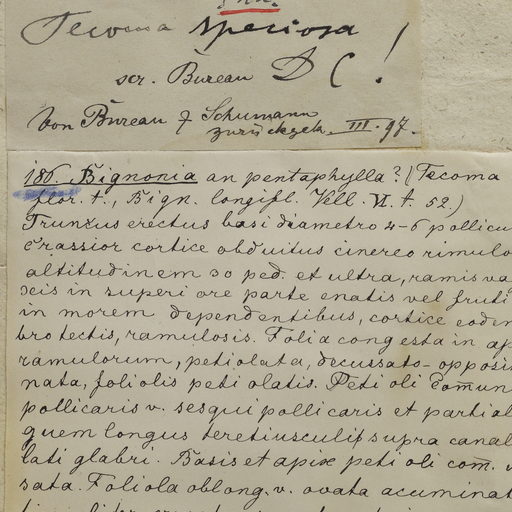 Tecoma speciosa
scr. Bureau DC!
Von Bureau & Schumann
zurückgek. III. 97.
186. Bignonia an pentaphylla? (Tecoma
flor. t., Bign. longifl. Vell. VI. t. 52)
Truncus erectus basi diametro 4-6 pollicu
crassior cortice obduitus cinereo rimulo
altitudinem 30 ped. et ultra, ramis va
seis in superiore parte enatis vel fruti
in morem dependentibus, cortice eoden
bro tectis, ramulosis. Folia congesta in ap
ramulorum, petiolata, decussato-opposi
nata, foliolis petiolatis. Petioli com̄un
pollicaris v. sesquipollicaris et partial
quem longus teretiusculis supra canal
lati glabri. Basis et apix petioli com̄.
sata. Foliola oblong. v. ovata acuminat